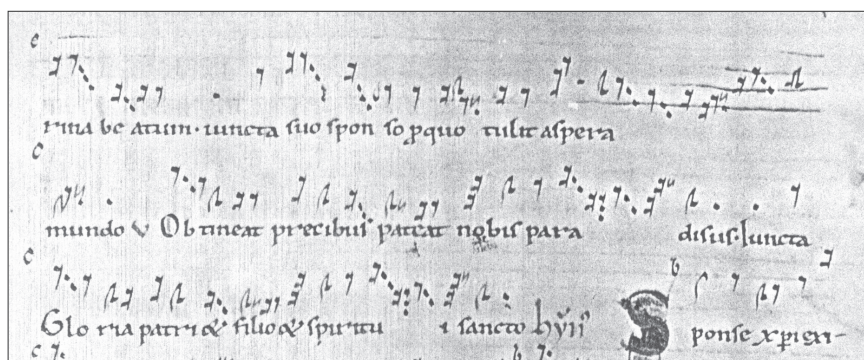 rina be atum · iuncta suo spon so ꝑ quo tulit aspera
mundo V Obtineat precibus pateat nobis para disus · Iuncta
Glo ria patri & filio & spiritu i sancto hỹn̄
Sponse xp̄i eri-